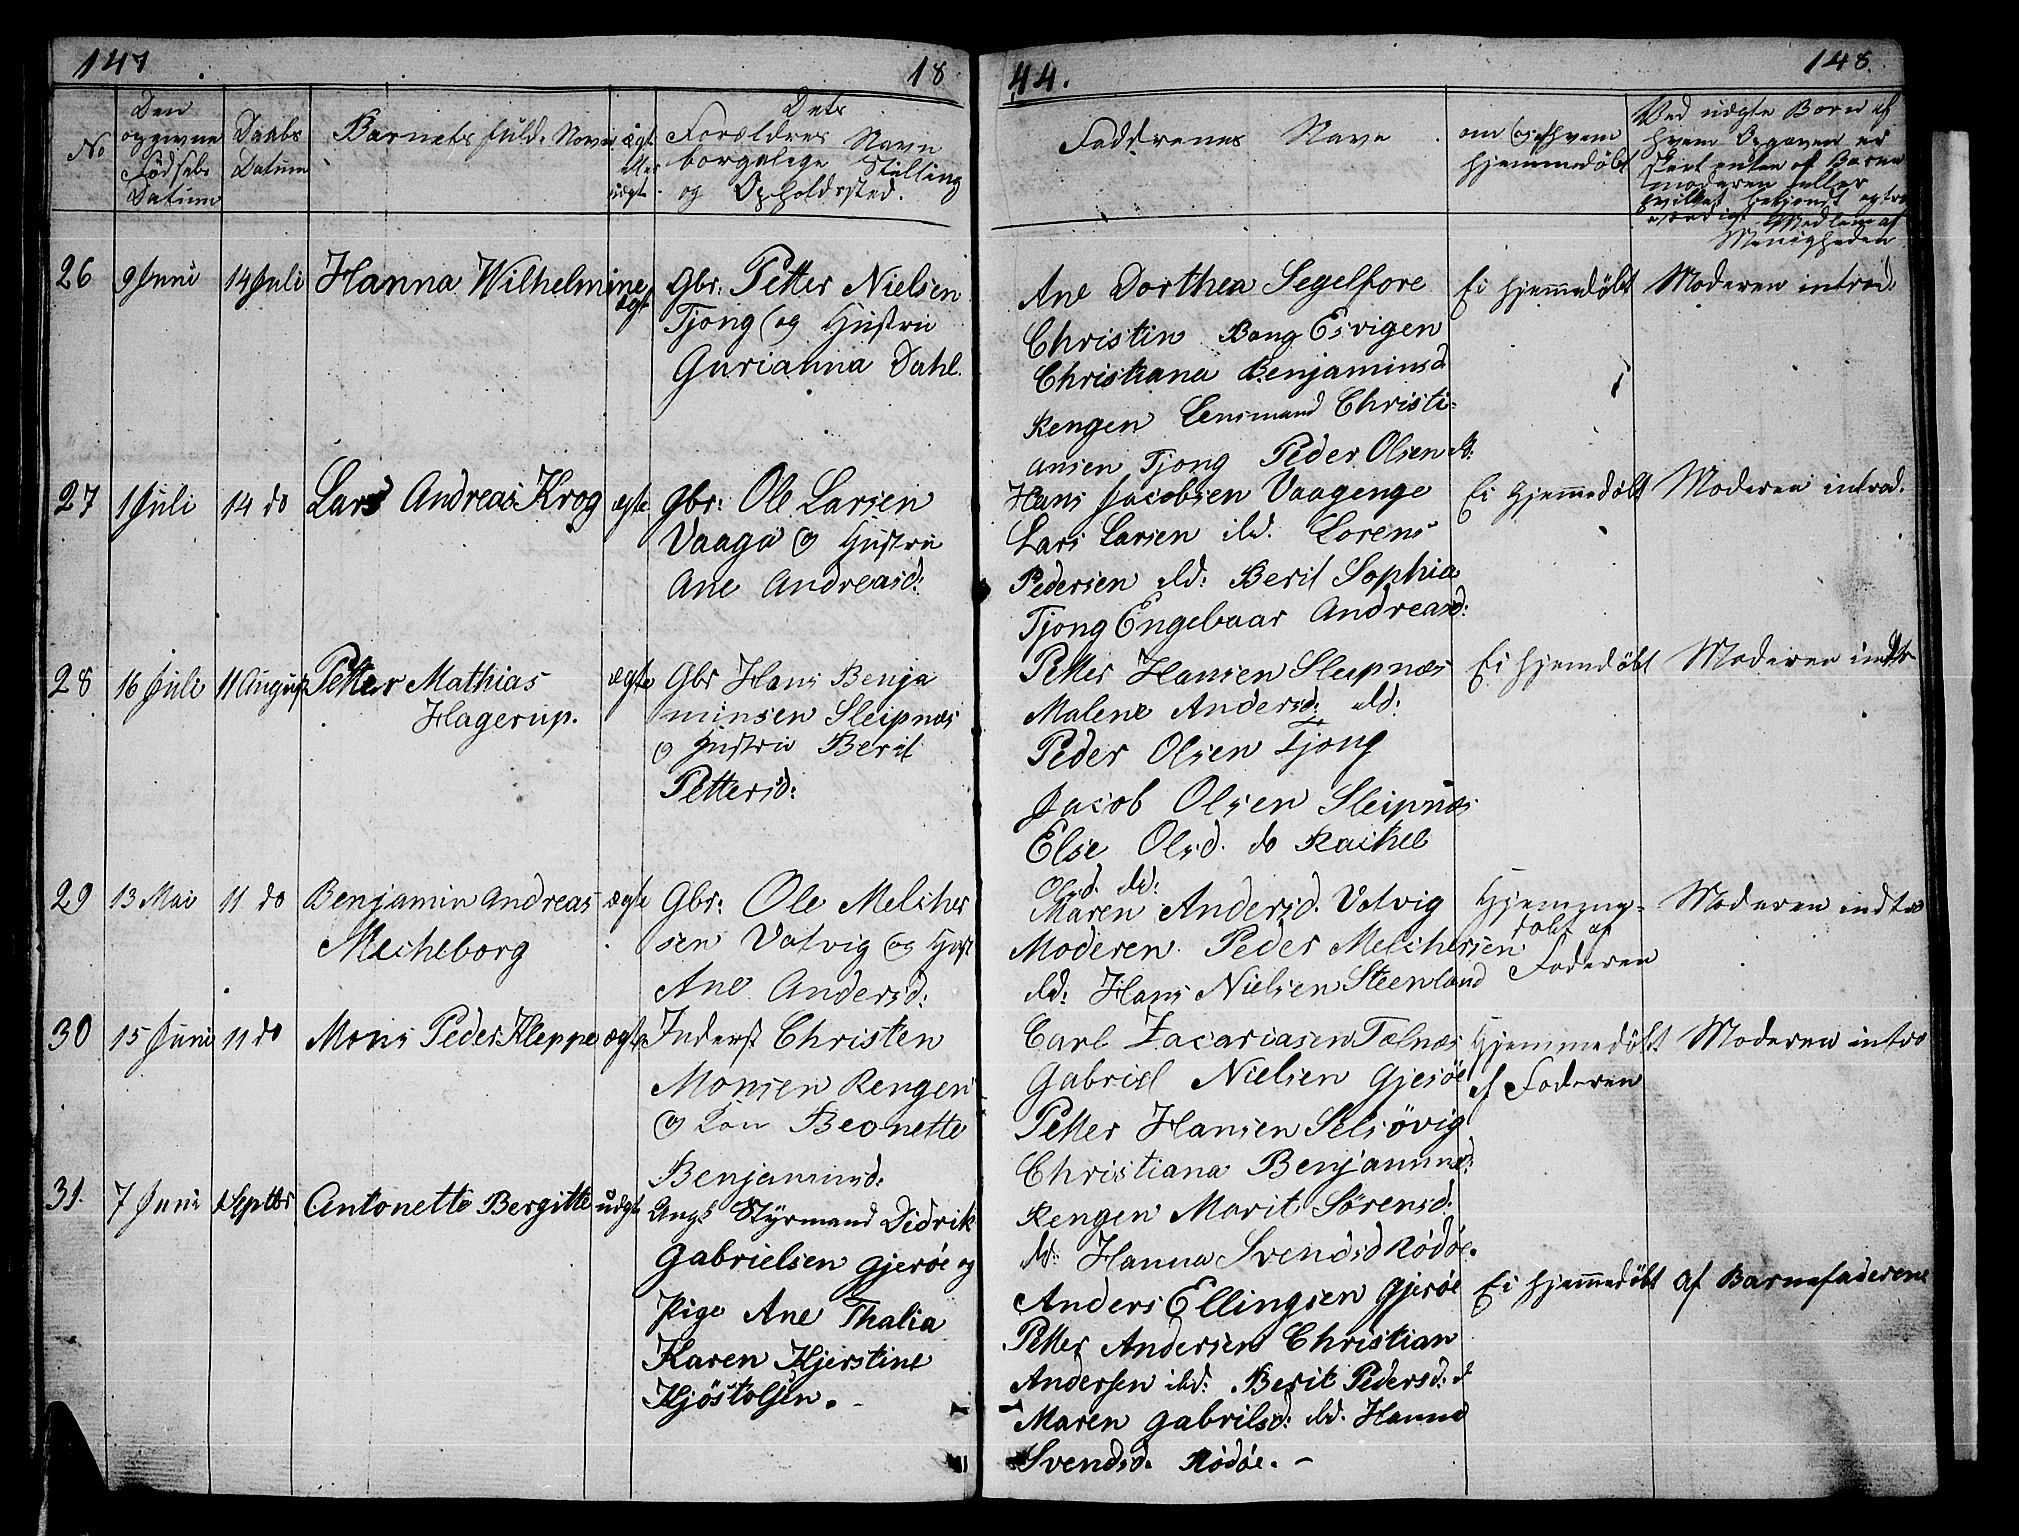 147
18
44.
148.
No
Den opgivne Fødsels Datum
Daabs Datum
Barnets fulde Navn
ægte eller uægte
Dets Forældres Navn borgelige Stilling og Opholdssted.
Faddrenes Navne
om og af hvem hjemmedøbt
Ved uægte Børn af
hvem Opgaven er
skeet enten af Barne
moderen eller
Medlem af
Menigheden
26
9 Juni
14 Juli
Hanna Wilhelmine
ægte
Gbr: Petter Nielsen
Tjong og Hustru
Gurianna Dahl.
Ane Dorthea Segelfore
Christin Bang Esvigen
Christiana Benjaminsd
Rengen Lensmand Christi-
ansen Tjong Peder Olsen do:
Ei hjemmedøbt
Moderen introd.
27
1 Juli
14 do
Lars Andreas Krog
ægte
Gbr: Ole Larsen
Vaaga og Hustru
Ane Andreasd:
Hans Jacobsen Vaagenge
Lars Larsen ibd. Lorens
Pedersen ibd: Berit Sophia
Tjong Engebaar Andreasd:
Ei hjemmedøbt
Moderen introd.
28
16 Juli
11 August
Petter Mathias
Hagerup.
ægte
Gbr Hans Benja
minsen Sleipnæs
og Hustru Berit
Pettersd:
Petter Hansen Sleipnæs
Malene Andersd: ibd:
Peder Olsen Tjong
Jacob Olsen Sleipnæs
Else Olsd. do Rachel
Olsd. ibd:
Ei hjemdøbt
Moderen indtr
29
13 Mai
11 do
Benjamin Andreas
Mecheborg
ægte
Gbr: Ole Melcher
sen Vatvig og Hust
Ane Andersd:
Maren Andersd. Vatvig
Moderen Peder Melchersen
ibd: Hans Nielsen Steenland
Hjemme-
døbt af
Faderen
Moderen indtro
30
15 Juni
11 do
Mons Peder Kleppe
ægte
Inderst Christen
Monsen Rengen
og Kon Beonette
Benjaminsd:
Carl Zacariasen Tælnæs
Gabriel Nielsen Gjesøe
Petter Hansen Selsövig
Christiana Benjaminsd:
Rengen Marit Sörensd:
ibd: Hanna Svendsd Rödöe.
Hjemmedøbt
af Faderen
Moderen intro
31.
7 Juni
1 Septbr
Antonette Bergitte
uægte
Ungk Styrmand Didrik
Gabrielsen Gjerøe og
Pige Ane Thalia
Karen Kjerstine
Kjöstolsen. -
Anders Ellingsen Gjerøe
Petter Andersen Christian
Andersen ibd: Berit Pedersd:
Maren Gabrilsd: ibd. Hanna
Svendsd. Rödöe. -
Ei hjemmedøbt
Af Barnefaderene